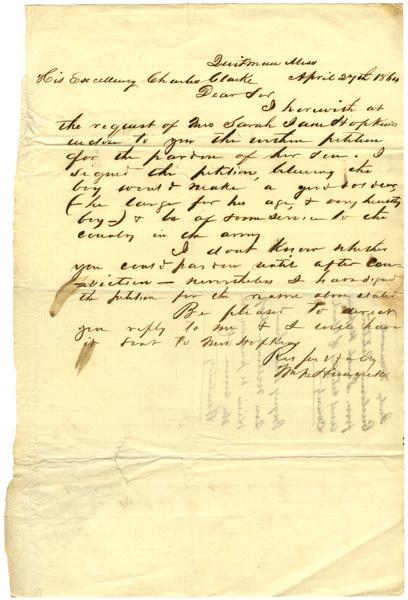 Quitman Miss
His Excellency Charles Clarke April 27th 1864
Dear Sir
I herewith at
the request of Mrs Sarah Jane Hopkins
enclose to you the within petition
for the pardon of her son. I
signed the petition, believing the
boy would make a good soldier
(he large for his age, & very healthy
boy) & be of some service to the
country in the army
I dont know whether
you could pardon until after con-
viction — nevertheless I have signed
the petition for the reasons above stated
Be pleased to direct
your reply to me & I will have
it sent to Mrs Hopkins
Respectfully
Wm